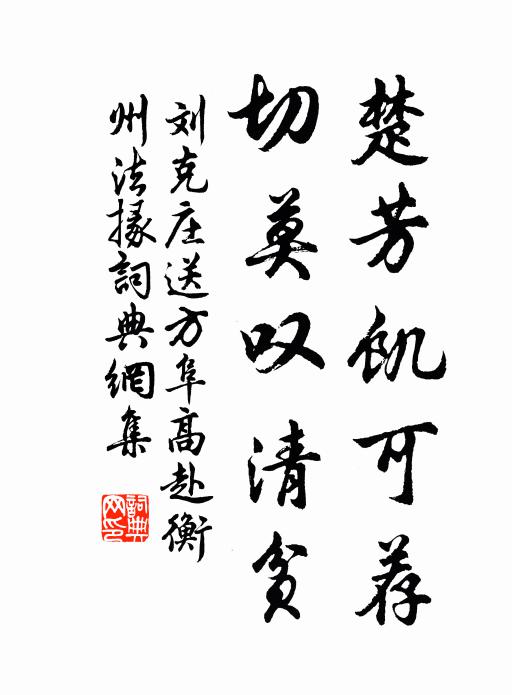 楚芳飢可荐
切莫叹清贫
刘克庄送方阜高赴衡
州法掾詞典網集
詞典网印